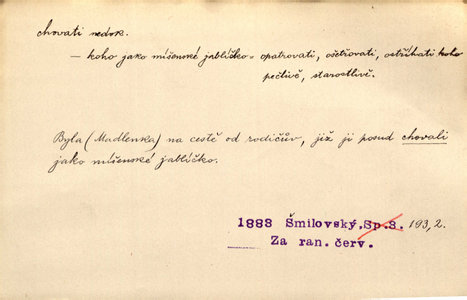 chovati nedok.
— koho jako míšenské jablíčko = opatrovati, ošetřovati, ostříhati koho
pečlivě, starostlivě.
Byla (Madlenka) na cestě od rodičův, již ji posud chovali
jako míšenské jablíčko.
1883 Šmilovský, Sp.3. 193,2.
Za ran. červ.